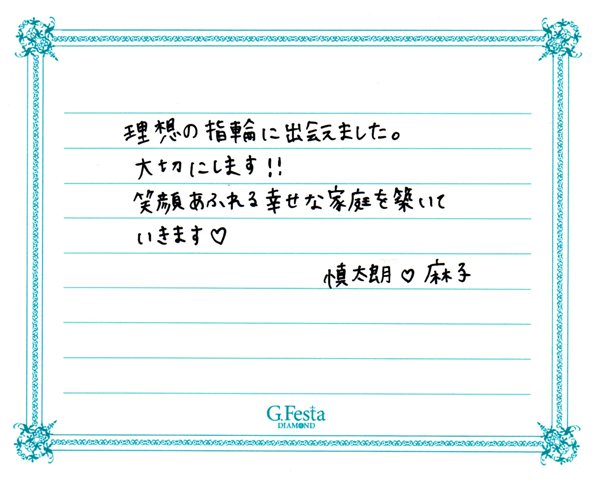 理想の指輪に出会えました。
大切にします!!
笑顔あふれる幸せな家庭を築いて
いきます♡
慎太朗♡麻子
G.Festa
DIAMOND